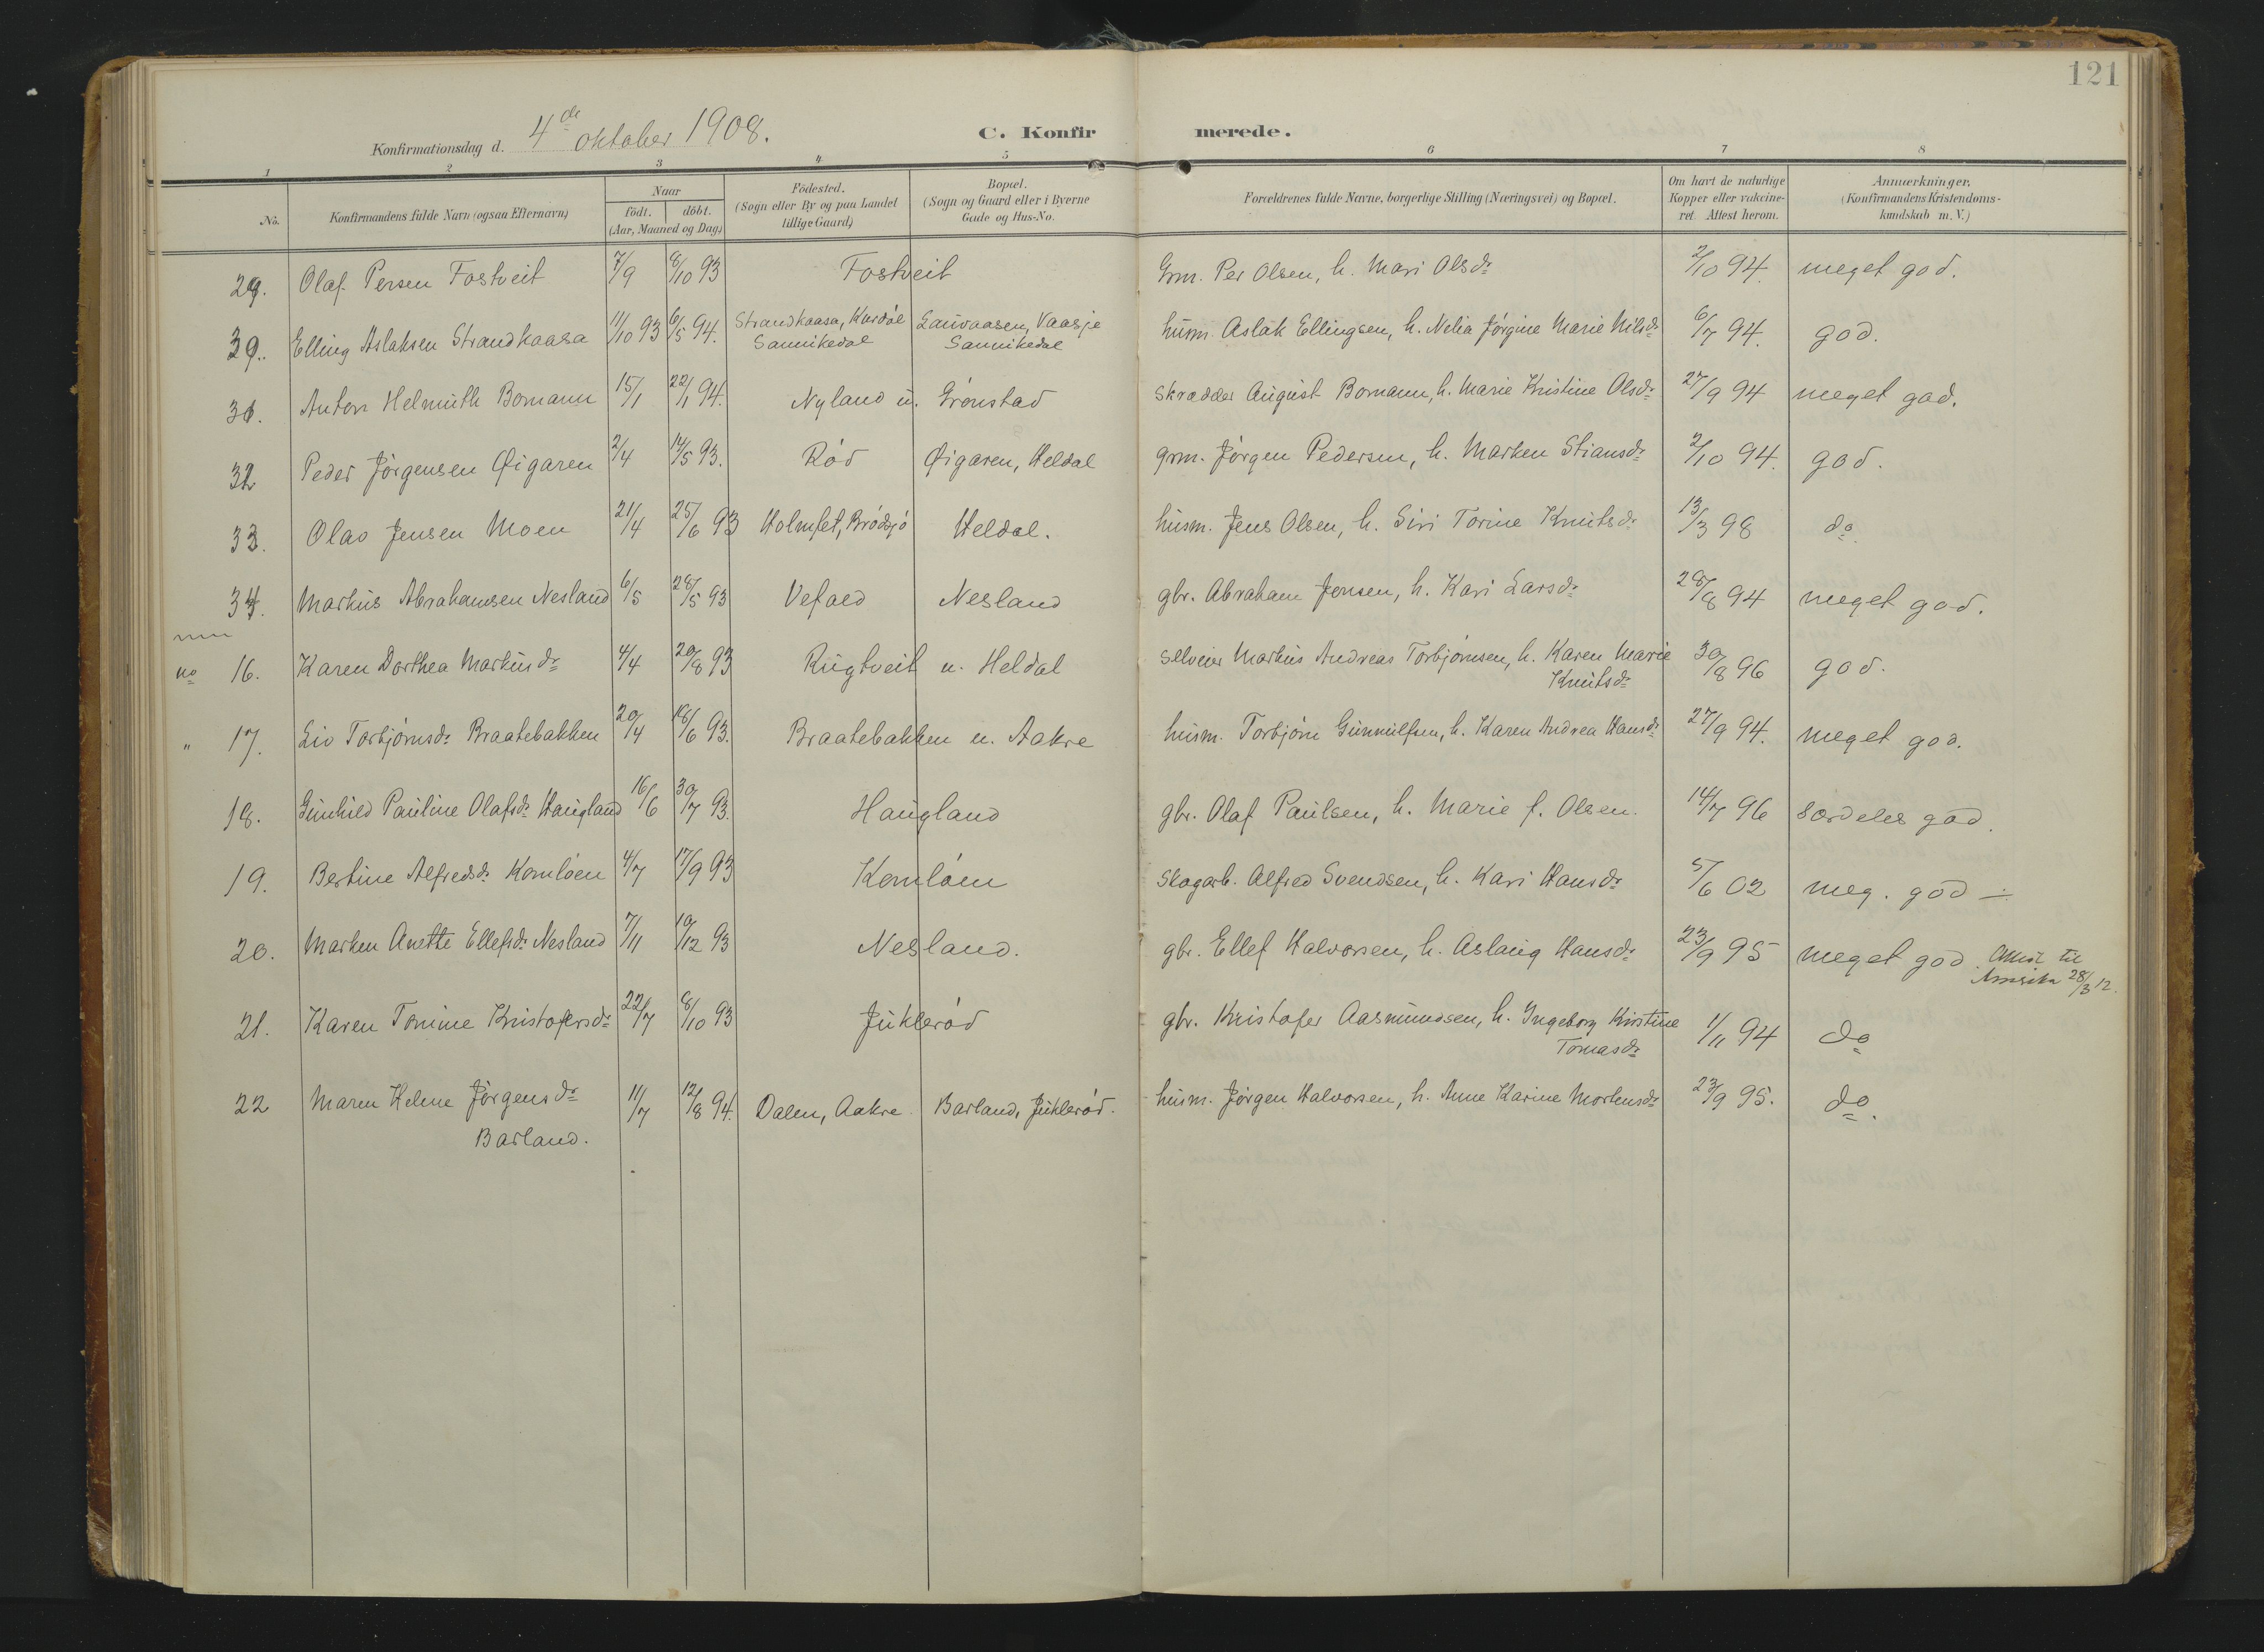 121
Konfirmationsdag d. 4de oktober 1908.
C. Konfirmerede.
1 2 3 4 5 6 7 8
No.
Konfirmandens fulde Navn (ogsaa Efternavn)
Naar
födt. döbt.
(Aar, Maaned og Dag)
Födested.
(Sogn eller By og paa Landet
tillige Gaard)
Bopæl.
(Sogn og Gaard eller i Byerne
Gade og Hus-No.
Forældrenes fulde Navne, borgerlige Stilling (Næringsvei) og Bopæl.
Om havt de naturlige
Kopper eller vakcine-
ret. Attest herom.
Anmærkninger.
(Konfirmandens Kristendoms-
kundskab m. V.)
29. Olaf Persen Fostveit 7/9 8/10 93 Fostveit Grm. Per Olsen, h. Mari Olsdr 2/10 94. meget god.
30. Elling Aslaksen Strandkaasa 11/10 93 6/5 94. Strandkaasa, Kurdøl Lauvaasen, Vaasje husm. Aslak Ellingsen, h. Nelia Jörgine Marie Nilsdr 6/7 94. god.
Sannikedal Sannikedal
31. Anton Helmuth Bomann 15/1 22/1 94. Nyland u. Grönstad Skrædder August Bomann, h. Marie Kristine Olsdr 27/9 94 meget god.
32 Peder Jörgensen Øigaren 2/4 14/5 93. Röd Øigaren, Heldal grm. Jörgen Pedersen, h. Marken Stiansdr 2/10 94. god.
33. Olav Jensen Moen 21/4 25/6 93 Holmset, Brödsjö Heldal. husm. Jens Olsen, h. Siri Torine Knutsdr 13/3 98 do.
34. Markus Abrahamsen Nesland 6/5 28/5 93 Vefald Nesland gbr. Abraham Jensen, h. Kari Larsdr 28/8 94 meget god.
no 16. Karen Dorthea Markusdr 4/4 20/8 93 Rugtveit u. Heldal Selveier Markus Andreas Torbjörnsen, h. Karen Marie 30/8 96 god.
Knutsdr
" 17. Liv Torbjörnsdr Braatebakken 20/4 18/6 93. Braatebakken u. Aakre husm. Torbjörn Gunnulfsen, h. Karen Andrea Hansdr 27/9 94. meget god.
18. Gunhild Pauline Olafsdr Haugland 16/6 30/7 93. Haugland gbr. Olaf Paulsen, h. Marie f. Olsen. 14/7 96 særdeles god.
19. Bertine Alfredsdr Komlöen 4/7 17/9 93 Komlöen Skogarb. Alfred Svendsen, h. Kari Hansdr 5/6 02 meg. god ÷
20. Marken Anette Ellefsdr Nesland 7/11 10/12 93 Nesland. gbr. Ellef Halvorsen, h. Aslaug Hansdr 23/9 95 meget god Attest til
Amerika 28/3 12.
21. Karen Tomine Kristofersdr 22/7 8/10 93 Juklerød gbr. Kristofer Aasmundsen, h. Ingeborg Kirstine 1/11 94 do
Tomasdr
22 Maren Helene Jörgensdr 11/7 12/8 94. Dalen, Aakre. Barland, Juklerød. husm. Jörgen Halvorsen, h. Anne Karine Mortensdr 23/9 95. do.
Barland.